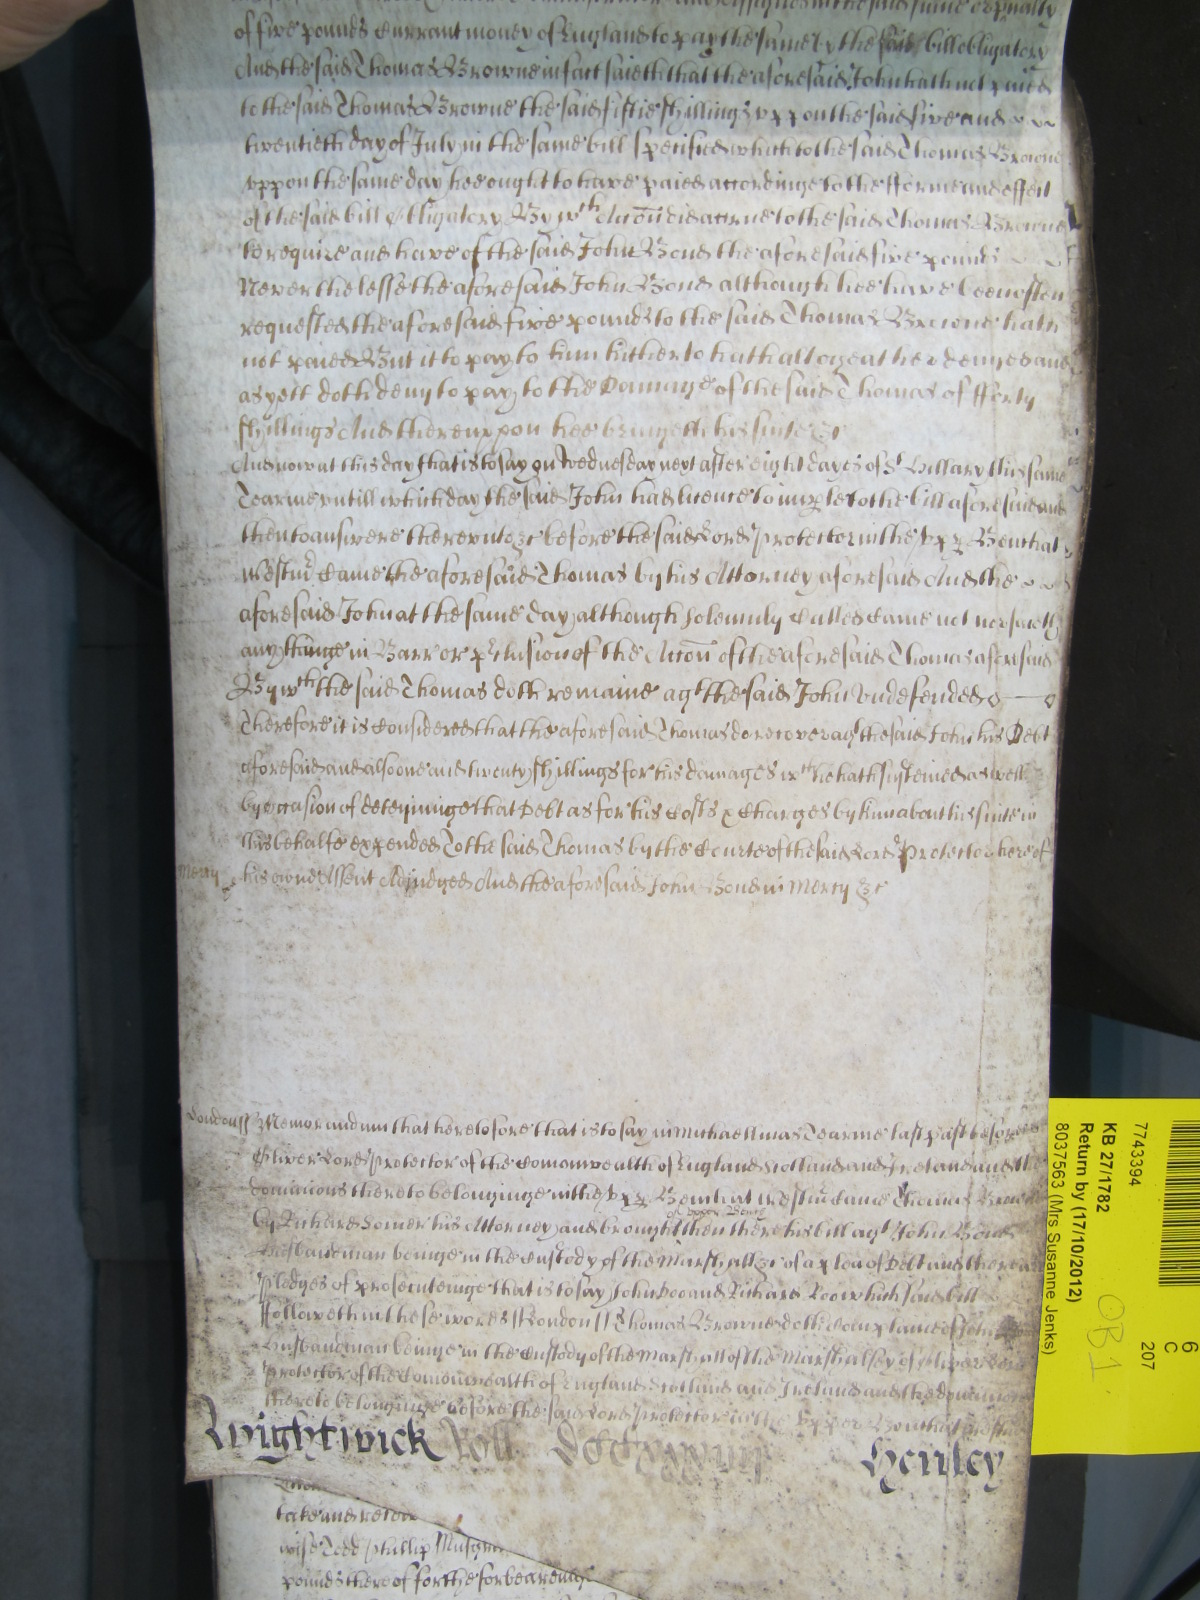 of five pounds Currant money of England to pay the same by the said bill obligatory
And the said Thomas Browne in fact saieth that the aforesaid John hath not paied
to the said Thomas Browne the said fiftie shillings uppon the said five and
twentieth day of July in the same bill specified which to the said Thomas Browne
uppon the same day hee ought to have paied accordinge to the fforme and effect
of the said bill obligatory By wch Accon did accrue to the said Thomas Browne
to require and have of the said John Bond the aforesaid five pounds
Neverthelesse the aforesaid John Bond although hee have been often
requested the aforesaid five pounds to the said Thomas Browne hath
not paied But it to pay to him hitherto hath altogeather denyed and
as yett doth deny to pay to the Damage of the said Thomas of fforty
shillings And thereuppon hee bringeth his suite &c
And now at this day that is to say on Wednesday next after eight dayes of St Hillary this same
Tearme untill which day the said John had licence to imparle to the bill aforesaid and
then to answere thereunto &c before the said Lord Protector in the upp Bench at
Westmr Came the aforesaid Thomas by his Attorney aforesaid And the
aforesaid John at the same day although solemnly Called Came not nor saieth
any thinge in Barr or pclusion of the Accon of the aforesaid Thomas aforesaid
By wch the said Thomas doth remaine agt the said John undefended
Therefore it is Considered that the aforesaid Thomas do recover agt the said John his Debt
aforesaid and alsoe one and twenty shillings for his damages wch he hath susteined as well
by occasion of deteyninge that Debt as for his Costs & Charges by him about his suite in
this behalfe expended To the said Thomas by the Courte of the said Lord Protector here of
Mercy his owne Assent Adjudged And the aforesaid John Bond in Mercy &c
London ss Memorandum that heretofore that is to say in Michaellmas Tearme last past before
Oliver Lord Protector of the Comonwealth of England Scotland and Ireland and the
dominions thereto belonginge in the upp Bench at Westmr Came Thomas Browne
by Richard Somer his Attorney and brought then there his bill agt John Bond
of upper
Husbandman beinge in the Custody of the Marshall &c of a plea of Debt and there are
pledges of prosecuteinge that is to say John Doo and Richard Roo which said bill
ffolloweth in these words ss London ss Thomas Browne doth Complaine of John
Husbandman beinge in the Custody of the Marshall of the Marshalsey of Oliver Lord
Protector of the Comonwealth of England Scotland and Ireland and the dominions
thereto belonginge before the said Lord Protector in the upper Bench at Westmr
Wightwick Roll Henley
take and
wise Todd Phillip
pounds thereof for the forbearing
7743394
KB 27/1782
Return by (17/10/2012)
8037563 (Mrs Susanne Jenks)
6
C
207
OB 1